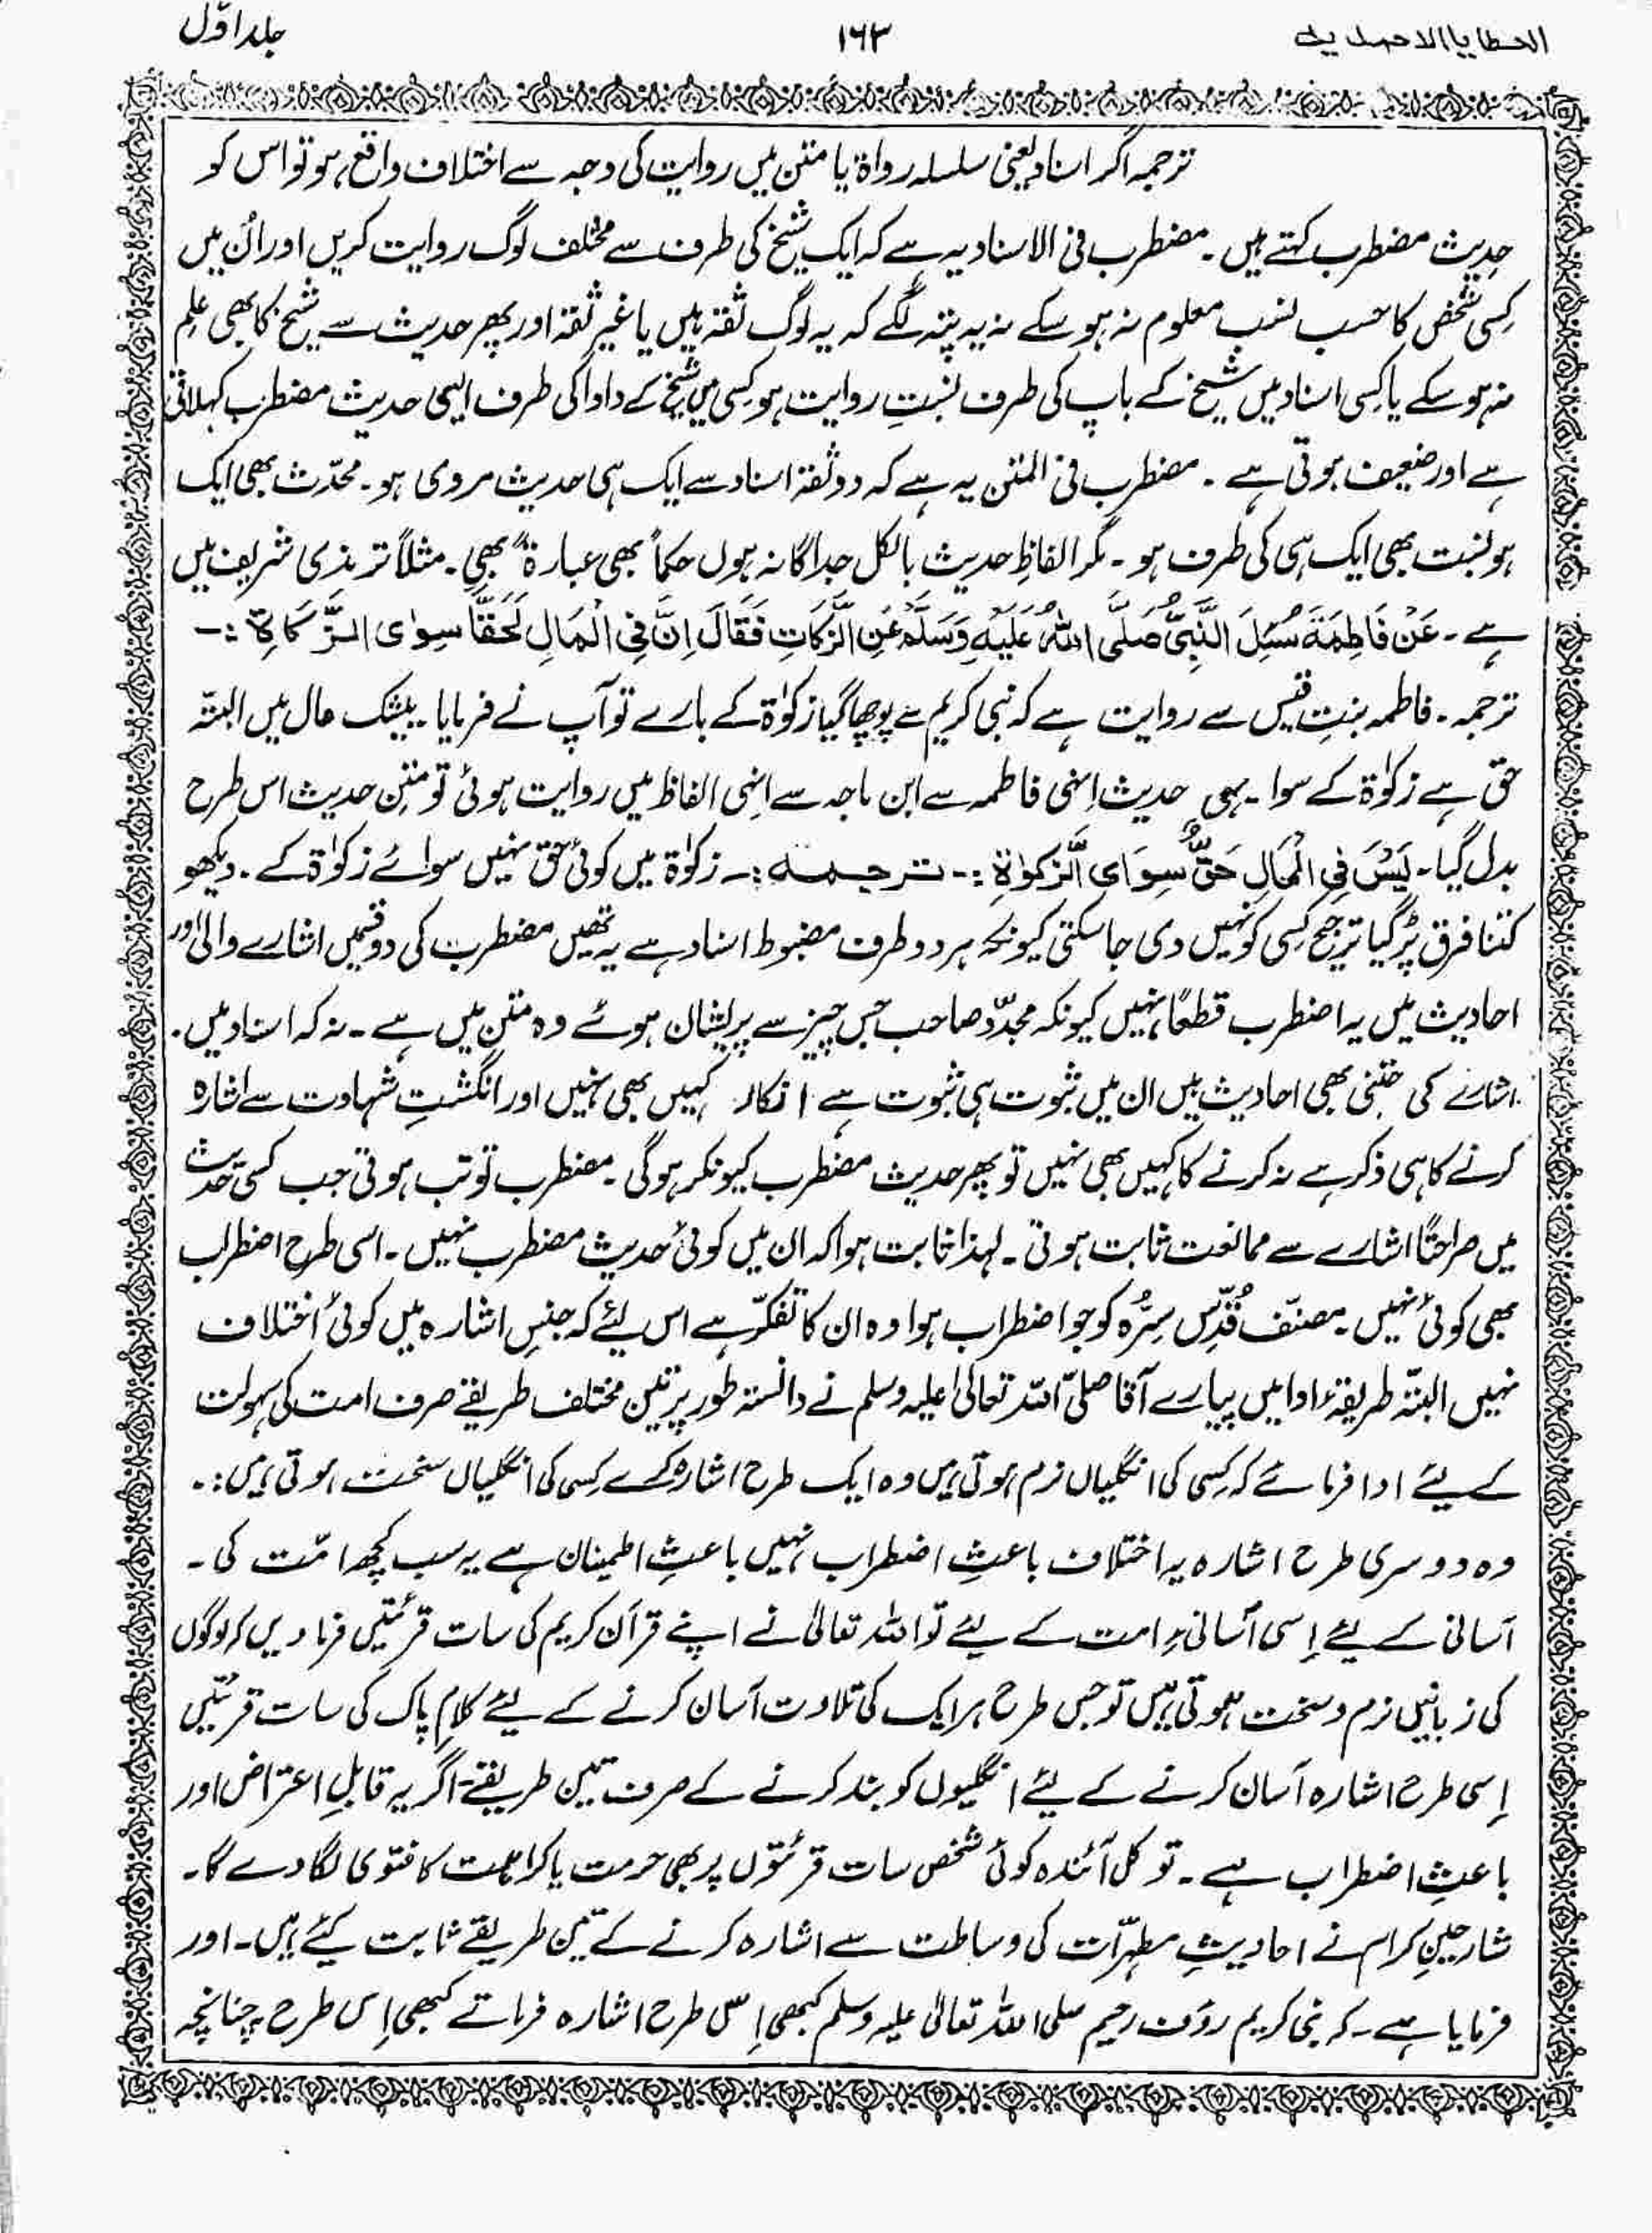 العطایا الاحمدیہ ۱۶۳ جلد اوّل
ترجمہ اگر اسناد یعنی سلسلہ رواۃ یا متن میں روایت کی وجہ سے اختلاف واقع ہو تو اس کو
حدیث مضطرب کہتے ہیں۔ مضطرب فی الاسناد یہ ہے کہ ایک شیخ کی طرف سے مختلف لوگ روایت کریں اور اُن میں
کِسی شخص کا حسب نسب معلوم نہ ہو سکے نہ یہ پتہ لگے کہ یہ لوگ ثقہ ہیں یا غیر ثقہ اور پھر حدیث سے شیخ کا بھی علم
نہ ہو سکے یا کِسی اسناد میں شیخ کے باپ کی طرف نسبتِ روایت ہو کِسی میں شیخ کے دادا کی طرف ایسی حدیث مضطرب کہلاتی
ہے اور ضعیف ہوتی ہے ۔ مضطرب فی المتن یہ ہے کہ دو ثقہ اسناد سے ایک ہی حدیث مروی ہو۔ محدّث بھی ایک
ہو نسبت بھی ایک ہی کی طرف ہو ۔ مگر الفاظِ حدیث بالکل جداگانہ ہوں حکماً بھی عبارۃً بھی۔ مثلاً ترمذی شریف میں
ہے ۔ عَنْ فَاطِمَةَ سُئِلَ النَّبِیُّ صَلَّی اللّٰہُ عَلَیْہِ وَسَلَّمَ عَنِ الزَّکَاتِ فَقَالَ اِنَّ فِی الْمَالِ لَحَقًّا سِوَای الزَّکَاۃِ :۔
ترجمہ ۔ فاطمہ بنتِ قیس سے روایت ہے کہ نبی کریم سے پوچھا گیا زکوٰۃ کے بارے تو آپ نے فرمایا۔ بیشک مال میں البتّہ
حق ہے زکوٰۃ کے سوا ۔ یہی حدیث اِنہی فاطمہ سے ابن ماجہ سے اِنہی الفاظ میں روایت ہوئی تو متنِ حدیث اس طرح
بدل گیا۔ لَیْسَ فِی الْمَالِ حَقٌّ سِوَای الزَّکوٰۃِ :۔ ترجمہ :۔ زکوٰۃ میں کوئی حق نہیں سوائے زکوٰۃ کے ۔ دیکھو
کتنا فرق پڑ گیا ترجیح کِسی کو نہیں دی جا سکتی کیونکہ ہر دو طرف مضبوط اسناد ہے یہ تھیں مضطرب کی دو قسمیں اشارے والی اور
احادیث میں یہ اضطرب قطعًا نہیں کیونکہ مجدّد صاحب جس چیز سے پریشان ہوئے وہ متن میں ہے ۔ نہ کہ اسناد میں۔
اشارے کی جتنی بھی احادیث ہیں ان میں ثبوت ہی ثبوت ہے انکار کہیں بھی نہیں اور انگشتِ شہادت سے اشارہ
کرنے کا ہی ذکر ہے نہ کرنے کا کہیں بھی نہیں تو پھر حدیث مضطرب کیونکر ہوگی ۔ مضطرب تو تب ہوتی جب کسی حدیث
میں صراحتًا اشارے سے ممانعت ثابت ہوتی ۔ لہذا ثابت ہوا کہ ان میں کوئی حدیث مضطرب نہیں ۔ اسی طرح اضطراب
بھی کوئی نہیں ۔ مصنّف قُدِّس سِرُّہ کو جو اضطراب ہوا وہ ان کا تفکّر ہے اس لیئے کہ جنسِ اشارہ میں کوئی اختلاف
نہیں البتّہ طریقۂ ادا میں پیارے آقا صلیّ اللّٰہ تعالیٰ علیہ وسلم نے دانستہ طور پر تین مختلف طریقے صرف امت کی سہولت
کے لیئے ادا فرمائے کہ کِسی کی انگلیاں نرم ہوتی ہیں وہ ایک طرح اشارہ کرے کِسی کی انگلیاں سخت ہوتی ہیں :۔
وہ دوسری طرح اشارہ یہ اختلاف باعثِ اضطراب نہیں باعثِ اطمینان ہے یہ سب کچھ امّت کی ۔
آسانی کے لیئے اِسی آسانیِ امت کے لیئے تو اللّٰہ تعالیٰ نے اپنے قرآن کریم کی سات قرئتیں فرما دیں کہ لوگوں
کی زبانیں نرم و سخت ہوتی ہیں تو جس طرح ہر ایک کی تلاوت آسان کرنے کے لیئے کلامِ پاک کی سات قرئتیں
اِسی طرح اشارہ آسان کرنے کے لیئے انگلیوں کو بند کرنے کے صرف تین طریقے۔ اگر یہ قابلِ اعتراض اور
باعثِ اضطراب ہے ۔ تو کل آئندہ کوئی شخص سات قرئتوں پر بھی حرمت یا کراہت کا فتوی لگا دے گا۔
شارحینِ کرام نے احادیثِ مطہّرات کی وساطت سے اشارہ کرنے کے تین طریقے ثابت کیئے ہیں۔ اور
فرمایا ہے ۔ کہ نبی کریم رؤف رحیم صلی اللّٰہ تعالیٰ علیہ وسلم کبھی اِس طرح اشارہ فرماتے کبھی اِس طرح چنانچہ